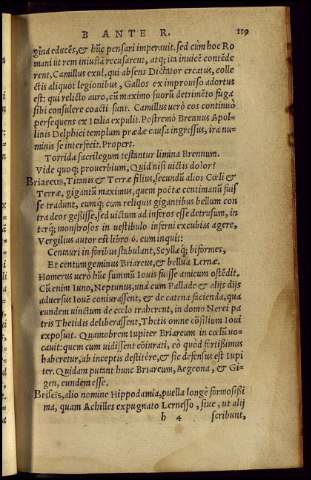 B ANTE R. 119
ginã educẽs, & hũc pensari imperauit. sed cùm hoc Ro
mani ut rem iniustã recusarent, atq; ita inuicẽ contẽde
rent, Camillus exul, qui absens Dictator creatus, colle
ctis aliquot legionibus, Gallos ex improuiso adortus
est: qui relicto auro, cũ maximo suorũ detrimẽto fuga
sibi consulere coacti sunt. Camillus uerò eos continuò
persequens ex Italia expulit. Postremò Brennus Apol-
linis Delphici templum prædæ causa ingressus, ira nu-
minis se interfecit. Propert.
Torrida sacrilegum testantur limina Brennum.
Vide quoq; prouerbium, Quid nisi uictis dolor?
Briareus, Titanis & Terræ filius, secundũ alios Cœli &
Terræ, gigantũ maximus, quem poëtæ centimanũ fuis
se tradunt, eumq; cum reliquis gigantibus bellum con
tra deos gessisse, sed uictum ad inferos esse detrusum, in
terq; monstrosos in uestibulo inferni excubias agere,
Vergilius autor est libro 6. cum inquit:
Centauri in foribus stabulant, Scyllæq; biformes,
Et centumgeminus Briareus, & bellua Lernæ.
Homerus uerò hũc summũ Iouis fuisse amicum ostẽdit.
Cũ enim Iuno, Neptunus, unà cum Pallade & alijs dijs
aduersus Iouẽ conspirassent, & de catena facienda, qua
eundem uinctum de cœlo traherent, in domo Nerei pa
tris Thetidis deliberassent, Thetis omne cõsilium Ioui
exposuit. Quamobrem Iupiter Briareum in cœlũ uo-
cauit: quem cum uidissent coniurati, eò quòd fortissimus
haberetur, ab inceptis destitêre, & sic defensus est Iupi
ter. Quidam putant hunc Briareum, Aegeona, & Gi-
gen, eundem esse.
Briseis, alio nomine Hippodamia, puella longè formosissi
ma, quam Achilles expugnato Lernesso, siue, ut alij
h 4 scribunt,